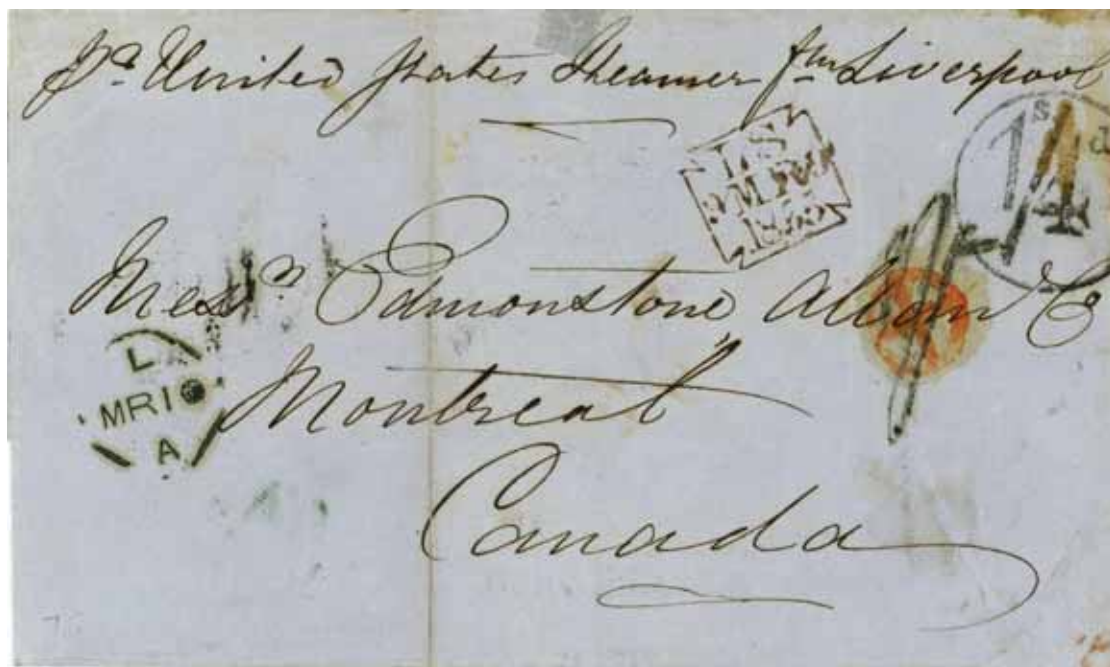 Pr United States Steamer fm Liverpool
LS
9 MR 9
1853
1s 4d
Messrs Edmonstone Allan & Co
L
MR 10
A
Montreal
Canada